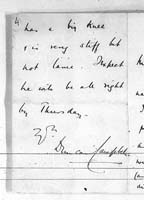 4
has a big knee
& is very stiff but
not lame. Inspect
he will be all right
by Thursday.
Duncan Campbell